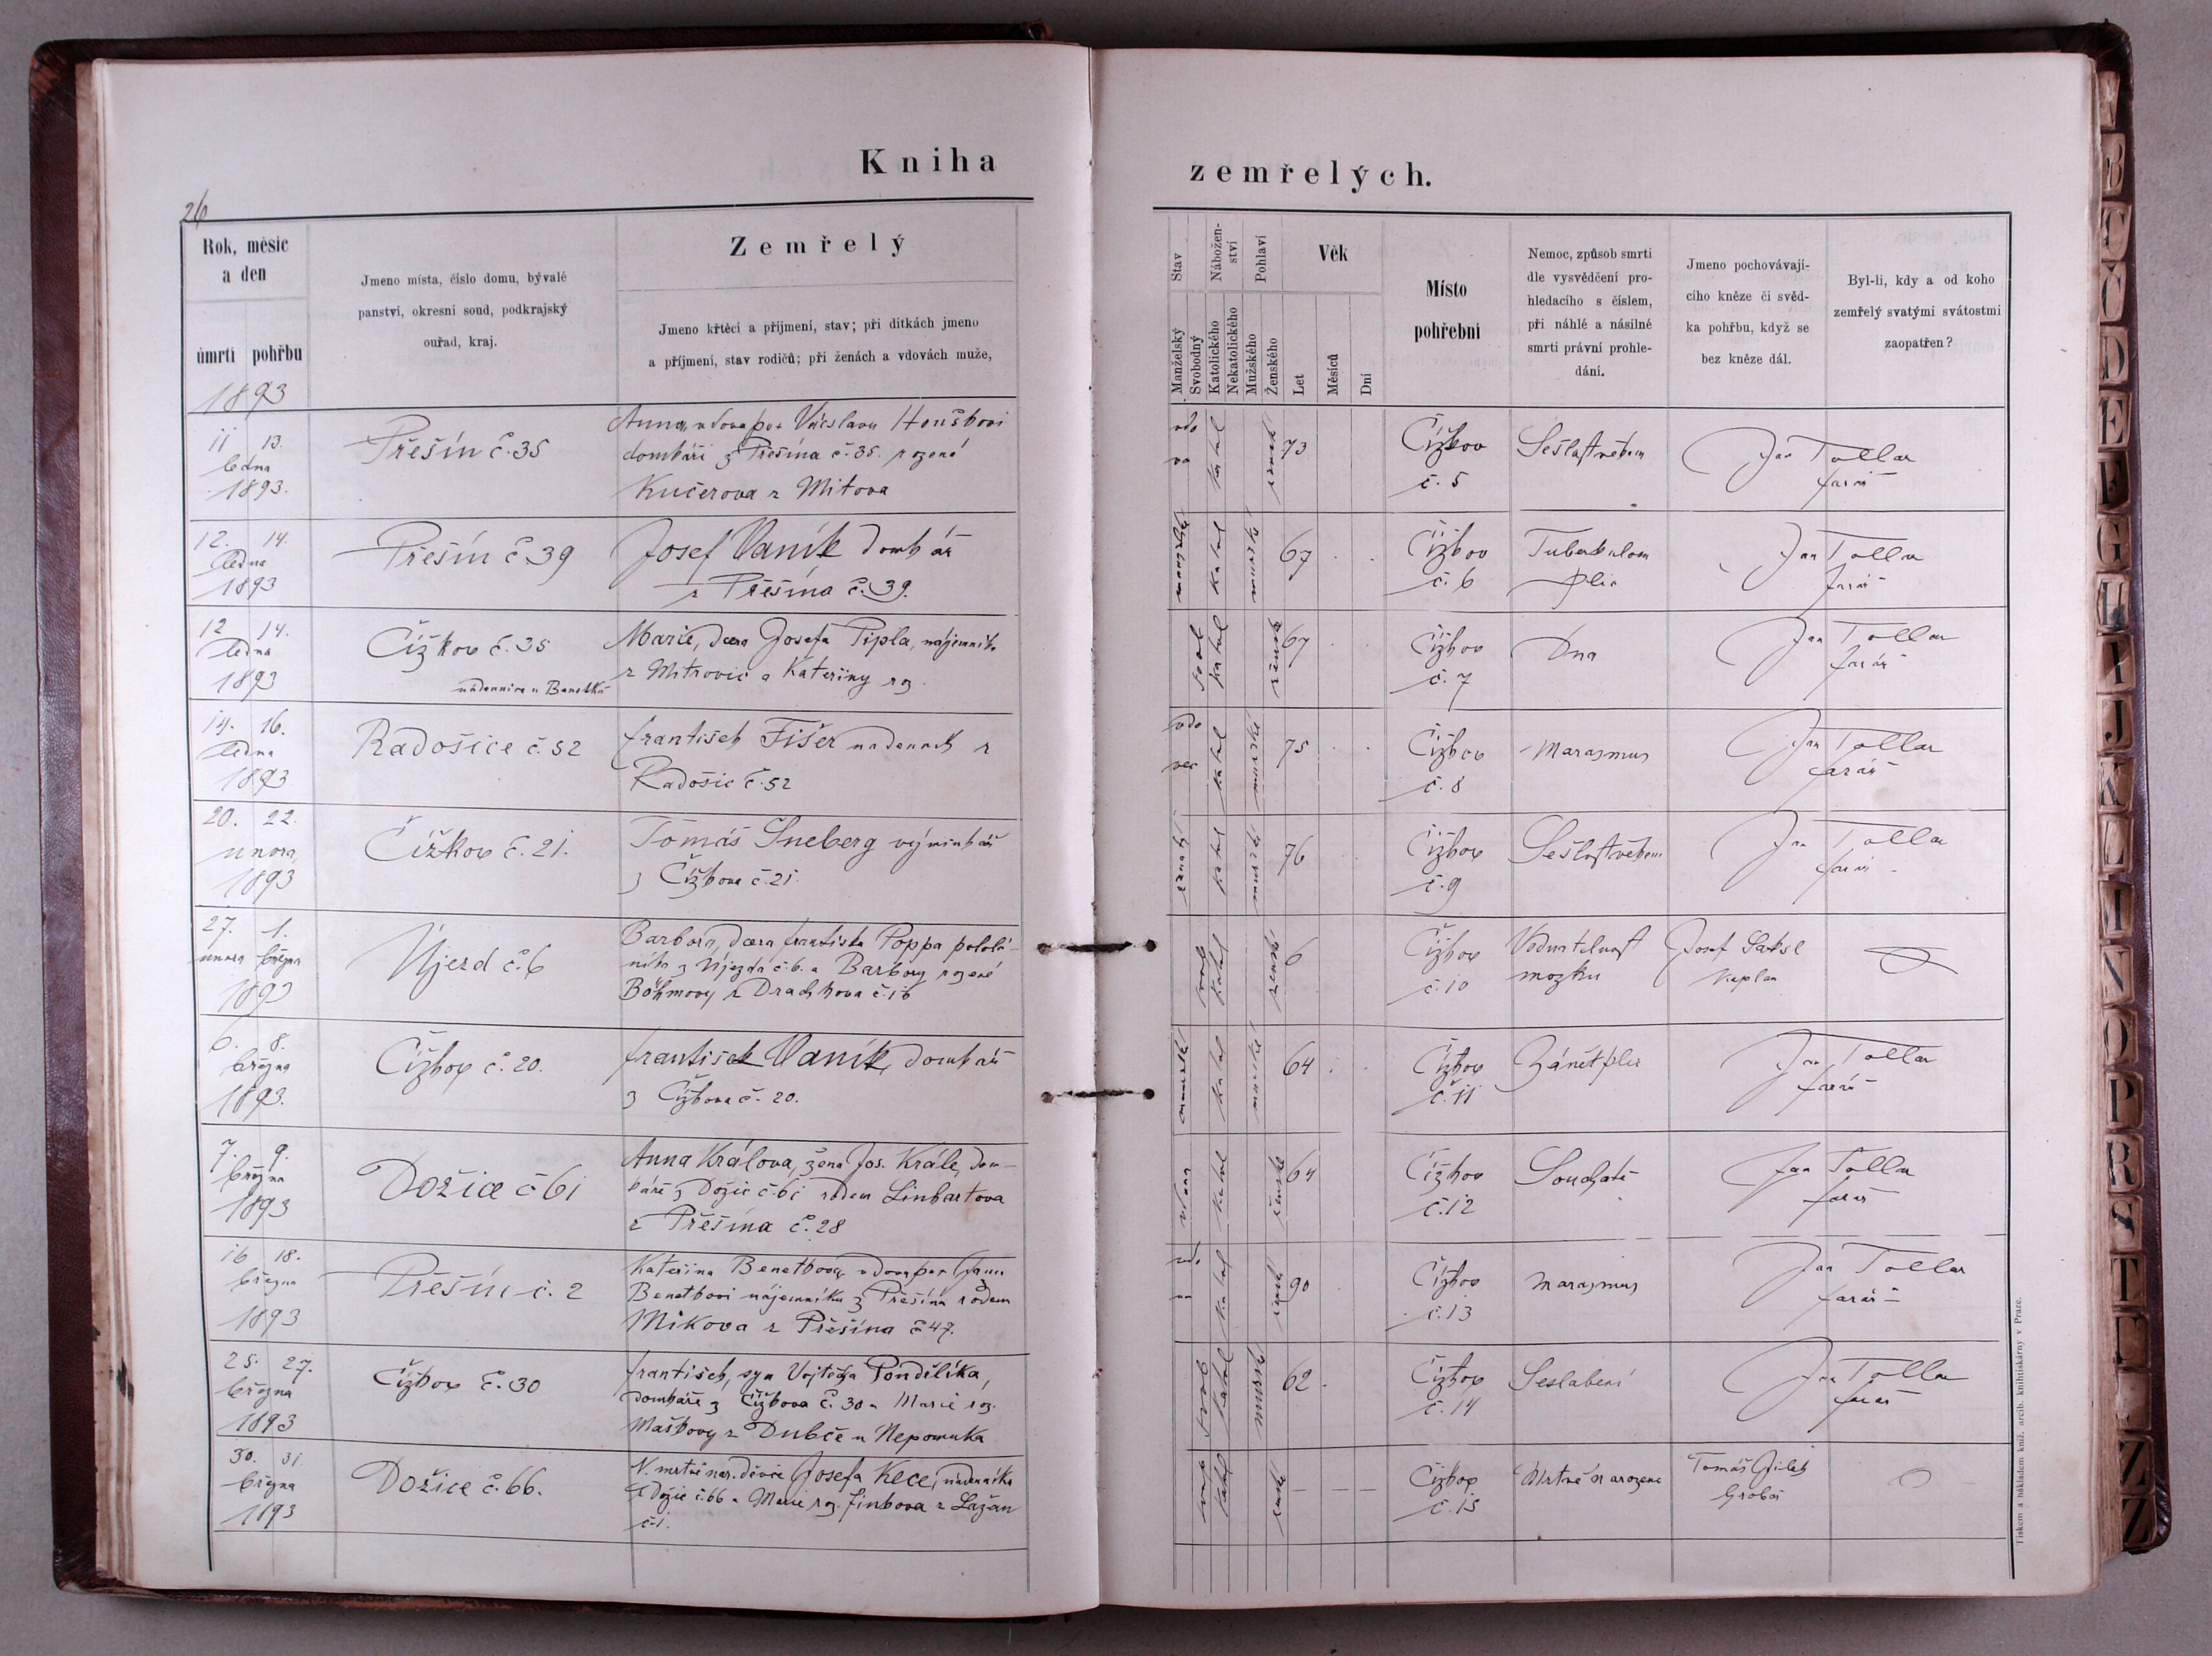 Kniha
zemřelých.
26
Rok, měsíc
a den
úmrtí pohřbu
Jmeno místa, číslo domu, bývalé
panství, okresní soud, podkrajský
ouřad, kraj.
Zemřelý
Jmeno křtěcí a příjmení, stav; při dítkách jmeno
a příjmení, stav rodičů; při ženách a vdovách muže,
Stav
Manželský
Svobodný
Nábožen-
ství
Katolického
Nekatolického
Pohlaví
Mužského
Ženského
Věk
Let
Měsíců
Dní
Místo
pohřební
Nemoc, způsob smrti
dle vysvědčení pro-
hledacího s číslem,
při náhlé a násilné
smrti právní prohle-
dání.
Jmeno pochovávají-
cího kněze či svěd-
ka pohřbu, když se
bez kněze dál.
Byl-li, kdy a od koho
zemřelý svatými svátostmi
zaopatřen?
1893
11 13.
ledna
1893.
Přešín č. 35
Anna, vdova po Václavu Houškovi
domkáři z Přešína č. 35. rozené
Kučerova z Mitova
vdo
va
katol
žensk
73
Čížkov
č. 5
Sešlost věkem
Jan Tollar
farář
12. 14.
ledna
1893
Přešín č. 39
Josef Vaník domkář
z Přešína č. 39.
katol
mužské
67
Čížkov
č. 6
Tuberkulosa
plic
Jan Tollar
farář
12 14.
ledna
1893
Čížkov č. 35
Marie, dcera Josefa Pipla, nájemníka
z Mitrovic a Kateřiny roz.
svob
katol
žensk
67
Čížkov
č. 7
Dna
Jan Tollar
farář
14. 16.
ledna
1893
Radošice č. 52
František Fišer nadenník z
Radošic č. 52
vdo
vec
katol
mužské
75
Čížkov
č. 8
Marasmus
Jan Tollar
farář
20. 22.
února
1893
Čížkov č. 21.
Tomáš Šneberg výminkář
z Čížkova č. 21.
ženatý
katol
mužské
76
Čížkov
č. 9
Sešlost věkem
Jan Tollar
farář
27. 1.
února března
1893
Újezd č. 6
Barbora, dcera Františka Poppa pololá-
níka z Újezda č. 6. a Barbory rozené
Böhmovy z Drachkova č. 16
svob
katol
žensk
6
Čížkov
č. 10
Vodnatelnost
mozku
Josef
kaplan
6. 8.
března
1893.
Čížkov č. 20.
František Vaník, domkář
z Čížkova č. 20.
katol
mužské
64
Čížkov
č. 11
Zánět plic
Jan Tollar
farář
7. 9.
března
1893
Dožice č 61
Anna Králova, žena Jos. Krále, dom-
káře z Dožic č. 61 rodem Linhartova
z Přešína č. 28
katol
ženské
64
Čížkov
č. 12
Souchotě
Jan Tollar
farář
16 18.
března
1893
Přešín č. 2
Kateřina Benetkova, vdova po Janu
Benetkovi nájemníku z Přešína rodem
Mikova z Přešína č 47.
katol
žensk
90
Čížkov
č. 13
Marasmus
Jan Tollar
farář
25. 27.
března
1893
Čížkov č. 30
František, syn Vojtěcha Pondělíka,
domkáře z Čížkova č. 30 a Marie roz.
Maškovy z Dubče u Nepomuka
svob
katol
mužské
62
Čížkov
č. 14
Seslabení
Jan Tollar
farář
30. 31.
března
1893
Dožice č. 66.
N. mrtvě nar. děvče Josefa Kece, nádenníka
z Dožic č. 66 a Marie roz. Finkova z Lažan
č 1.
svob
katol
žensk
Čížkov
č. 15
Mrtvě narozené
Tomáš Jílek
hrobař
Tiskem a nákladem kníž. arcib. knihtiskárny v Praze.
B C Č D E F G H I J K L N O P R S T Z Z